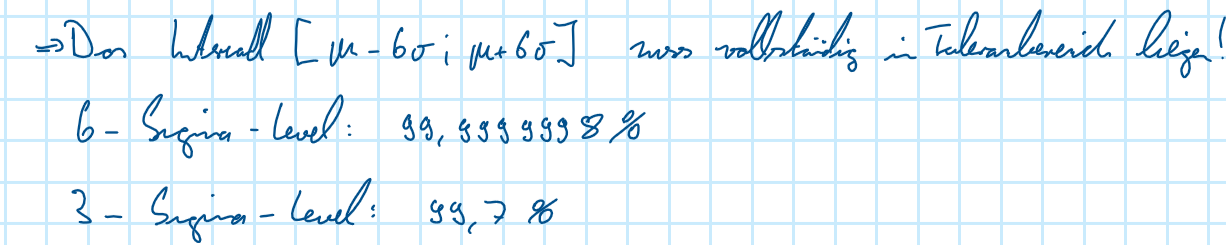 ⇒ Das Intervall [μ - 6σ ; μ + 6σ] muss vollständig in Toleranzbereich liegen!
6 - Sigma - Level: 99,9999998 %
3 - Sigma - Level: 99,7 %